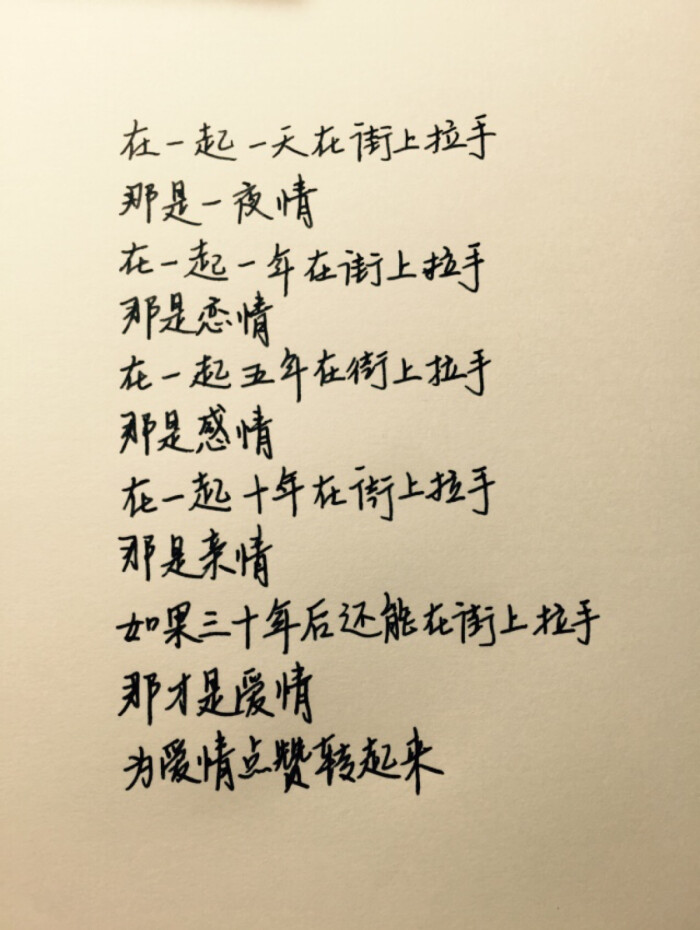 在一起一天在街上拉手
那是一夜情
在一起一年在街上拉手
那是恋情
在一起五年在街上拉手
那是感情
在一起十年在街上拉手
那是亲情
如果三十年后还能在街上拉手
那才是爱情
为爱情点赞转起来